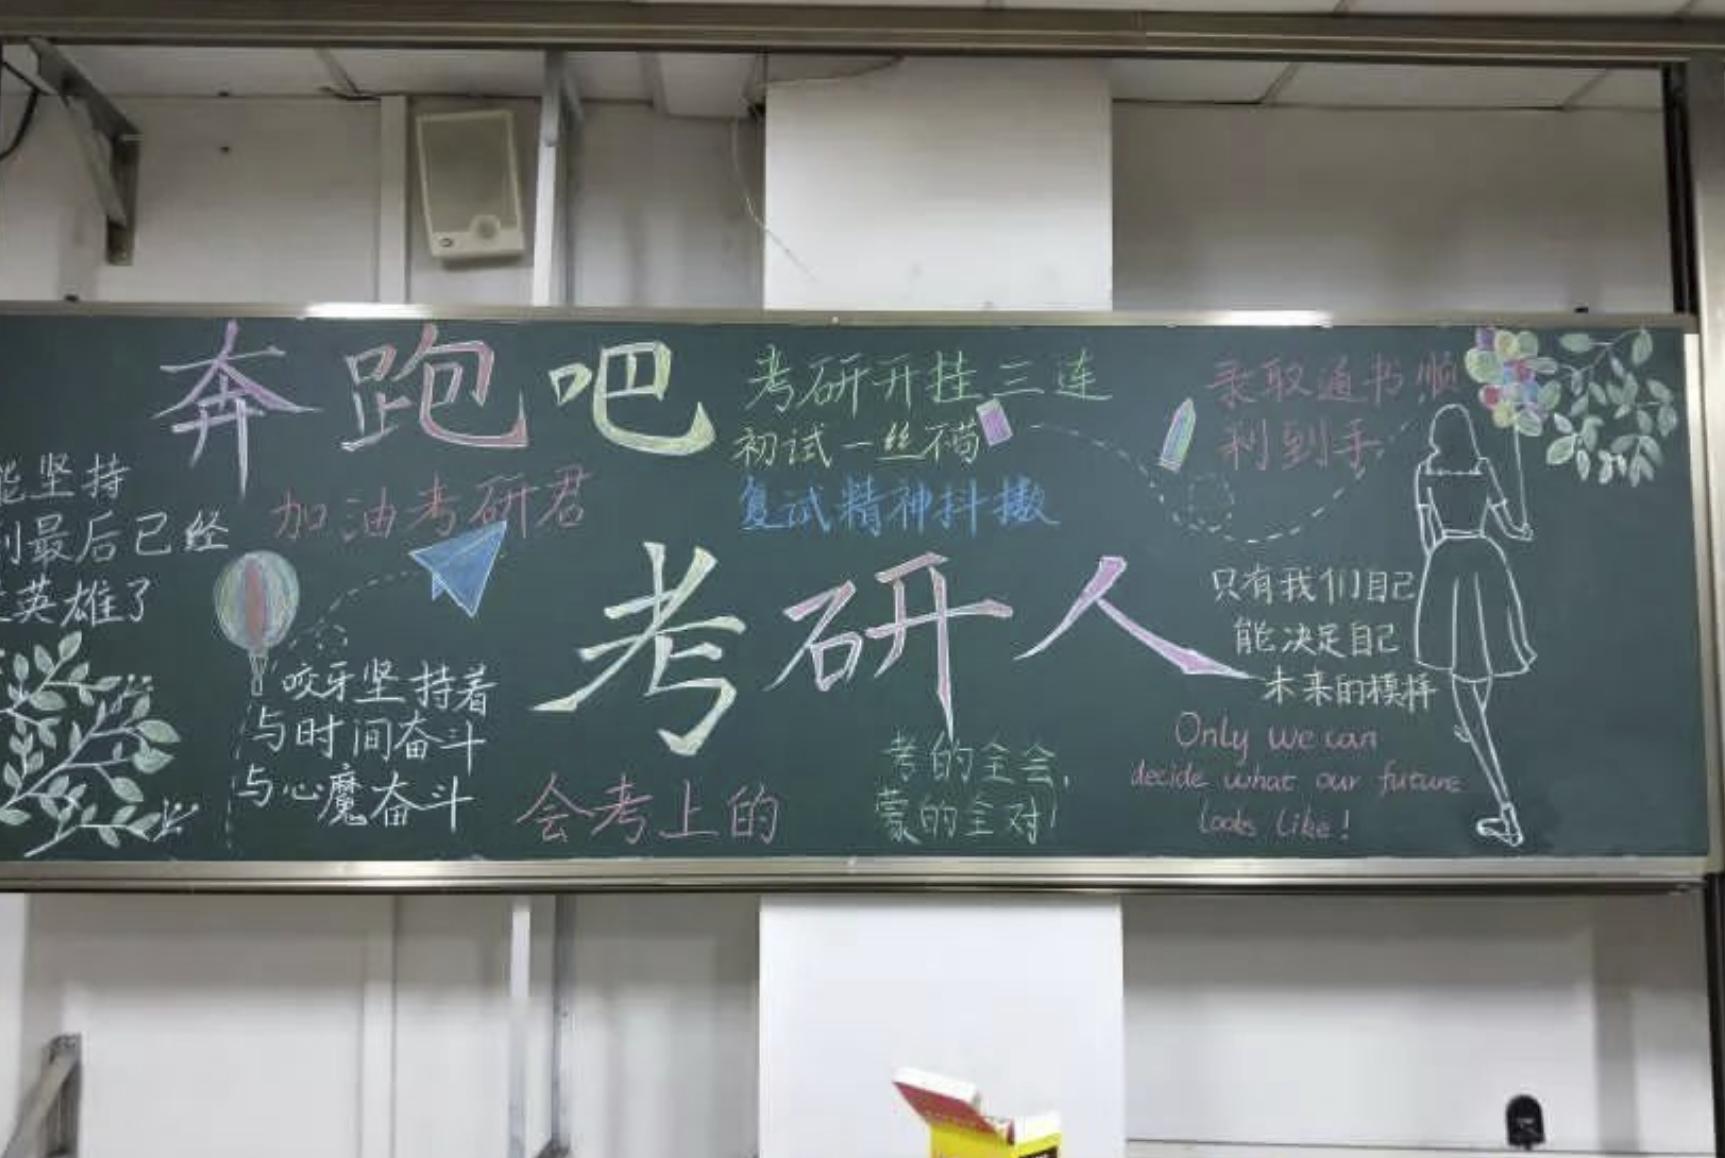 奔跑吧
考研人
能坚持
到最后已经
是英雄了
加油考研君
咬牙坚持着
与时间奋斗
与心魔奋斗
会考上的
考研开挂三连
初试一丝不苟
复试精神抖擞
录取通书顺
利到手
考的全会,
蒙的全对!
只有我们自己
能决定自己
未来的模样
Only we can
decide what our future
looks like!